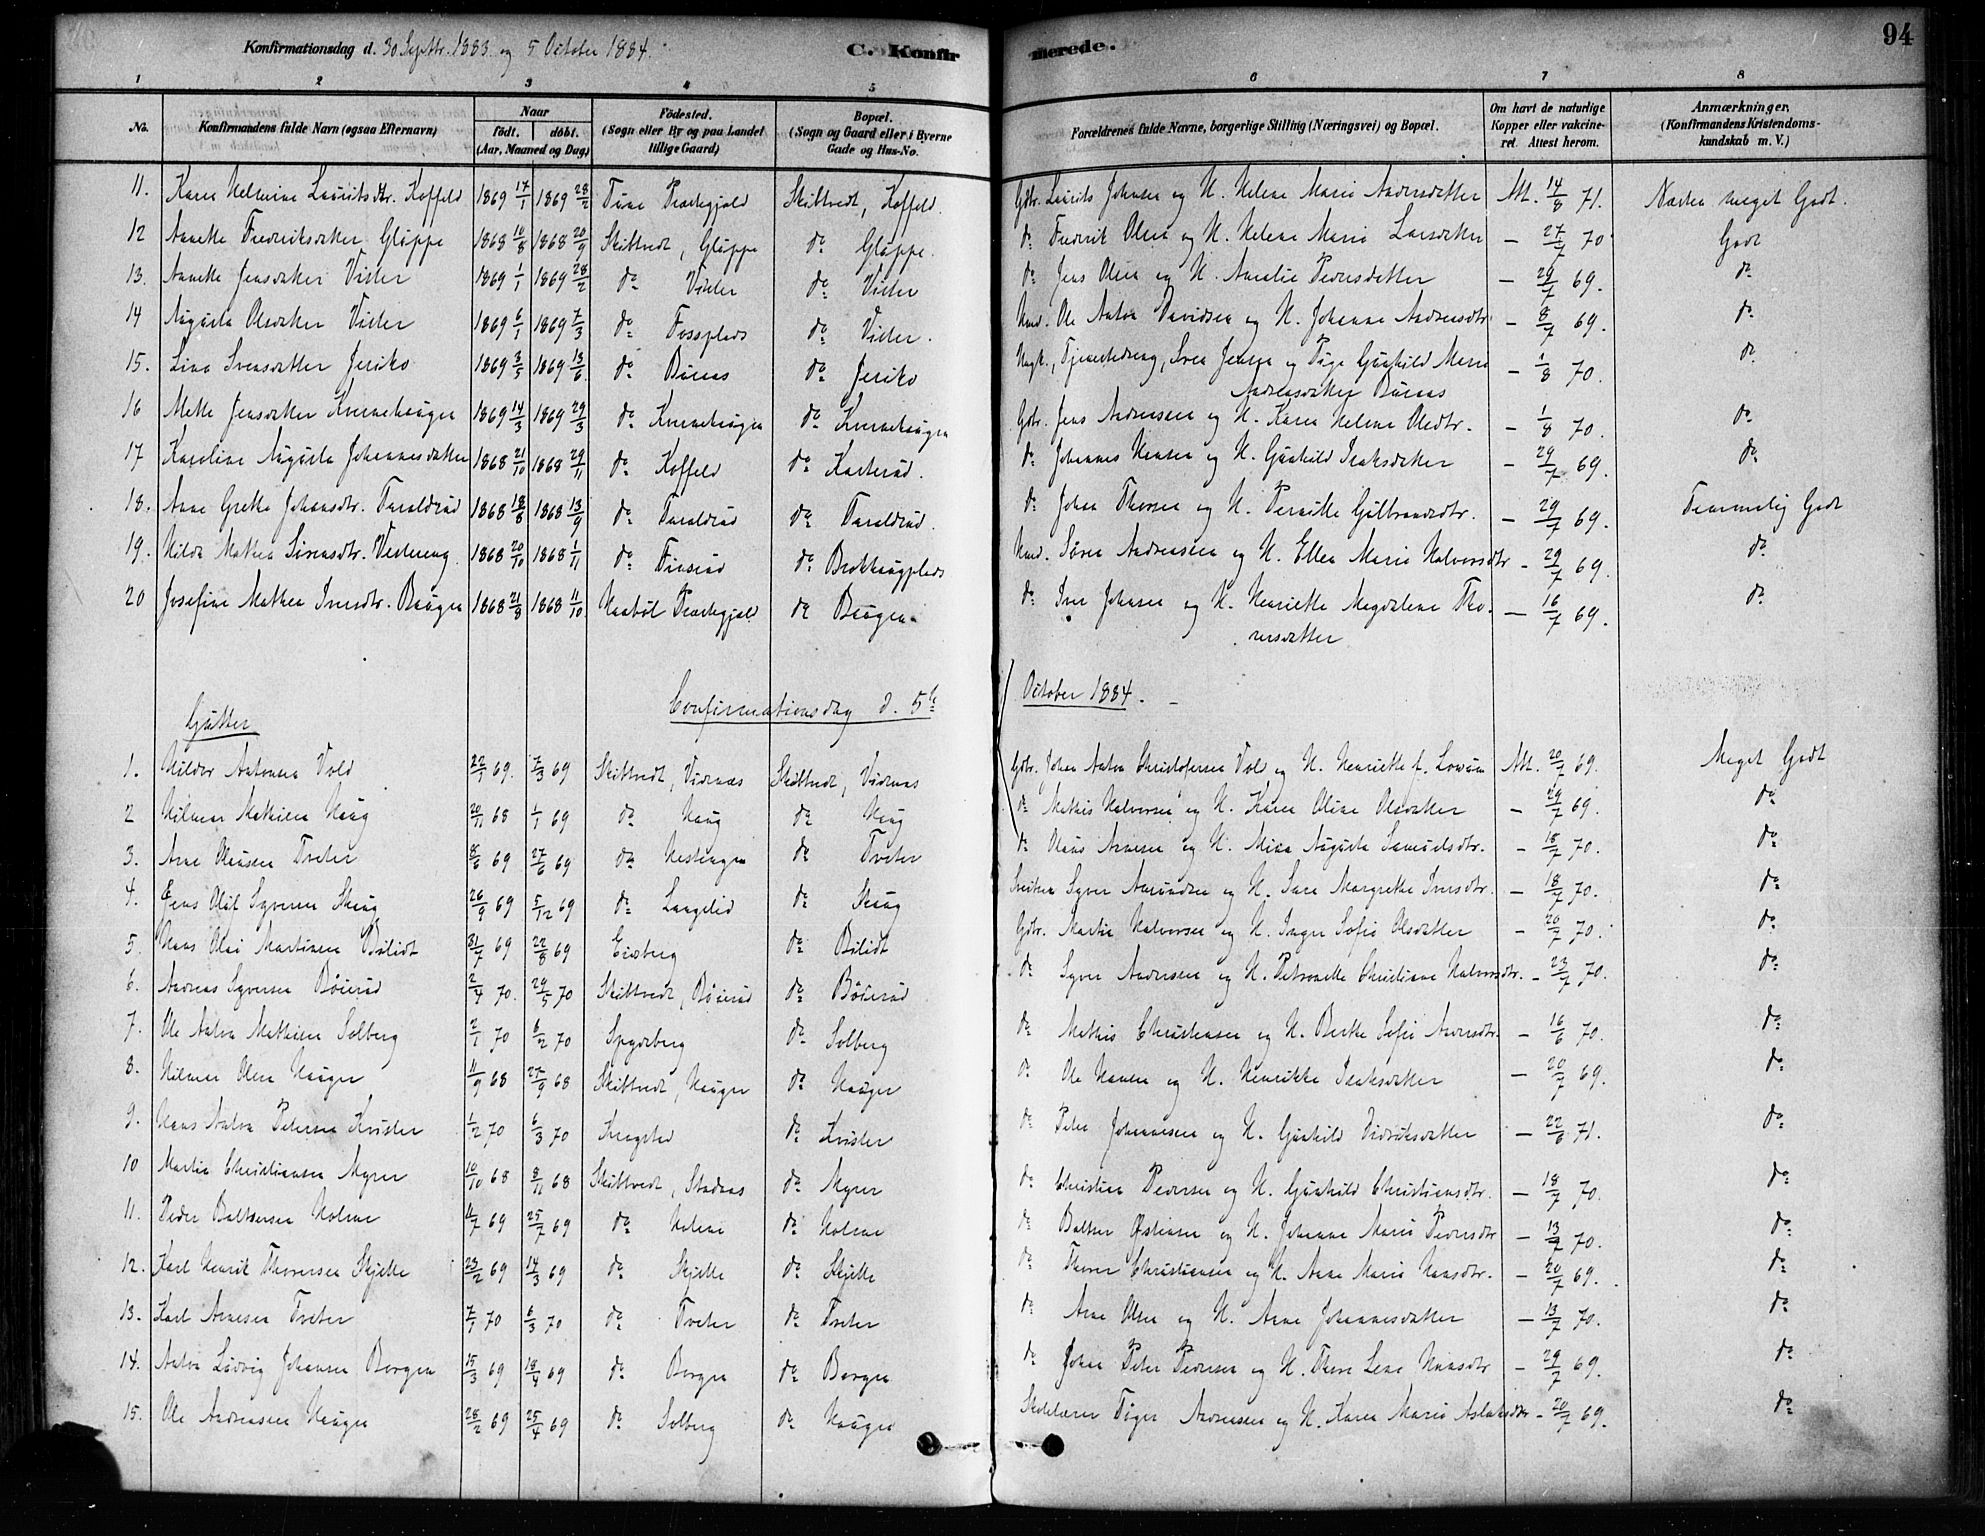 Konfirmationsdag d. 30 Septbr. 1883 og 5 October 1884.
C. Konfirmerede.
94
1 2 3 4 5 6 7 8
No.
Konfirmandens fulde Navn (ogsaa Efternavn)
Naar
født. døbt.
(Aar, Maaned og Dag)
Fødested.
(Sogn eller By og paa Landet
tillige Gaard)
Bopæl.
(Sogn og Gaard eller i Byerne
Gade og Hus-No.
Forældrenes fulde Navne, borgerlige Stilling (Næringsvei) og Bopæl.
Om havt de naturlige
Kopper eller vakcine-
ret. Attest herom.
Anmærkninger.
(Konfirmandens Kristendoms-
kundskab m. V.)
11. Karen Helmine Lauritsdtr. Koffeld 1869 17/1 1869 28/2 Tune Præstegjeld Skiptvedt, Koffeld. Gdbr. Laurits Johnsen og H. Helene Marie Andersdatter Att. 14/8 71. Næsten meget Godt.
12 Annette Fredriksdatter Glöppe 1868 10/8 1868 20/9 Skiptvedt, Glöppe do Glöppe. do Fredrik Olsen og H. Helene Marie Larsdatter — 27/7 70 Godt
13. Annette Jensdatter Vister 1869 1/1 1869 28/2 do Vister do Vister do Jens Olsen og H. Amalie Pedersdatter — 29/7 69. do
14 Augusta Olsdatter Vister 1869 6/1 1869 7/3 do Fossplads do Vister. Hmd. Ole Anton Davidsen og H. Johanne Andersdtr. — 8/7 69. do
15. Lina Svensdatter Jeriko 1869 3/5 1869 13/6 do Buraas do Jeriko Tjenestedreng, Sven Jensen og Pige Gunhild Marie — 1/8 70. do
Andreasdatter Buraas
16 Mette Jensdatter Kvernehaugen 1869 14/3 1869 29/3 do Kvernehaugen do Kvernehaugen Gdbr. Jens Andersen og H. Karen Helene Olsdtr. — 1/8 70. do
17 Karoline Augusta Johannesdatter 1868 21/10 1868 29/11 do Koffeld do Karterud. do Johannes Hansen og H. Gunhild Isaksdatter — 29/7 69. do
18. Anne Grethe Johansdtr. Taraldrud 1868 18/8 1868 13/9 do Taraldrud do Taraldrud. do Johan Thorsen og H. Pernille Gulbrandsdtr. — 29/7 69. Temmelig Godt
19. Hilda Mathea Sörensdtr. Vestereng 1868 20/10 1868 1/11 do Finsrud do Brekkeugplads Hmd. Sören Andreassen og H. Ellen Marie Halvorsdtr — 29/7 69. do
20 Josefine Mathea Iversdtr. Haugen 1868 21/8 1868 11/10. Haabøl Præstegjeld do Haugen. do Iver Johnsen og H. Henriette Magdalena Tho- — 16/7 69. do
rersdatter
Gutter
Confirmationsdag d. 5te October 1884.
1. Hildor Antonsen Vold 22/1 69. 7/3 69 Skiptvedt, Vidnæs Skiptvedt, Vidnæs Gdbr. Johan Anton Christofersen Vol og H. Henriette f. Att. 20/7 69. Meget Godt
2 Hilmar Mathisen Haug 20/11 68 1/1 69 do Haug do Haug do Mathis Halvorsen og H. Karen Oline Olsdatter — 29/7 69. do
3. Arne Olausen Tveter 8/6 69 27/6 69 do Hestehagen do Tveter do Olaus Arnesen og H. Mina Augusta Samuelsdtr. — 18/7 70. do
4. Jens Olaf Syversen Skaug 26/9 69 5/12 69 do Langelid do Skaug Syver Amundsen og H. Sara Margrethe Iversdtr. — 18/7 70. do
5. Hans Olai Martinsen Bilidt 31/7 69 22/8 69 Eidsberg do Bilidt Gdbr. Martin Halvorsen og H. Inger Sofie Olsdatter — 20/7 70. do
6. Andreas Syversen Böierud 2/4 70. 29/5 70 Skiptvedt, Böierud do Böierud do Syver Andersen og H. Petronelle Christiane Halvorsdtr. — 23/7 70. do
7. Ole Anton Mathisen Solberg 2/1 70 6/2 70 Spydeberg do Solberg do Mathis Christensen og H. Berthe Sofie Andersdtr. — 16/6 70. do
8. Hilmar Olsen Hauger 11/9 68 27/9 68 Skiptvedt, Hauger do Hauger do Ole Hansen og H. Henrikke Isaksdatter — 20/7 69. do
9. Hans Anton Petersen Kvister 1/2 70 6/3 70 Kragstad do Kvister do Peter Johannesen og H. Gunhild Didriksdatter — 22/8 71. do
10 Martin Christiansen Myrer 10/10 68 8/11 68 Skiptvedt, Stadaas do Myrer do Christian Pedersen og H. Gunhild Christiansdtr. — 18/7 70. do
11. Peder Baltsersen Holene 11/7 69 25/7 69 do Holene do Holene do Baltser Østensen og H. Johanne Marie Pedersdtr — 13/7 70. do
12. Karl Henrik Thoresen Skjelle 23/2 69 14/3 69 do Skjelle do Skjelle do Thorer Christiansen og H. Anne Marie Hansdtr. — 20/7 69. do
13. Karl Arnesen Tveter 7/1 70 6/3 70 do Tveter do Tveter do Arne Olsen og H. Anne Johannesdatter — 13/7 70. do
14. Anton Ludvig Johansen Borgen 15/3 69 18/4 69 do Borgen do Borgen do Johan Peter Pedersen og H. Thora Lena Hansdtr — 29/7 69. do
15. Ole Andreassen Hauger 28/2 69 25/4 69 do Solberg do Hauger Skolelærer Tøger Andersen og H. Karen Marie Aslaksdtr — 20/7 69. do